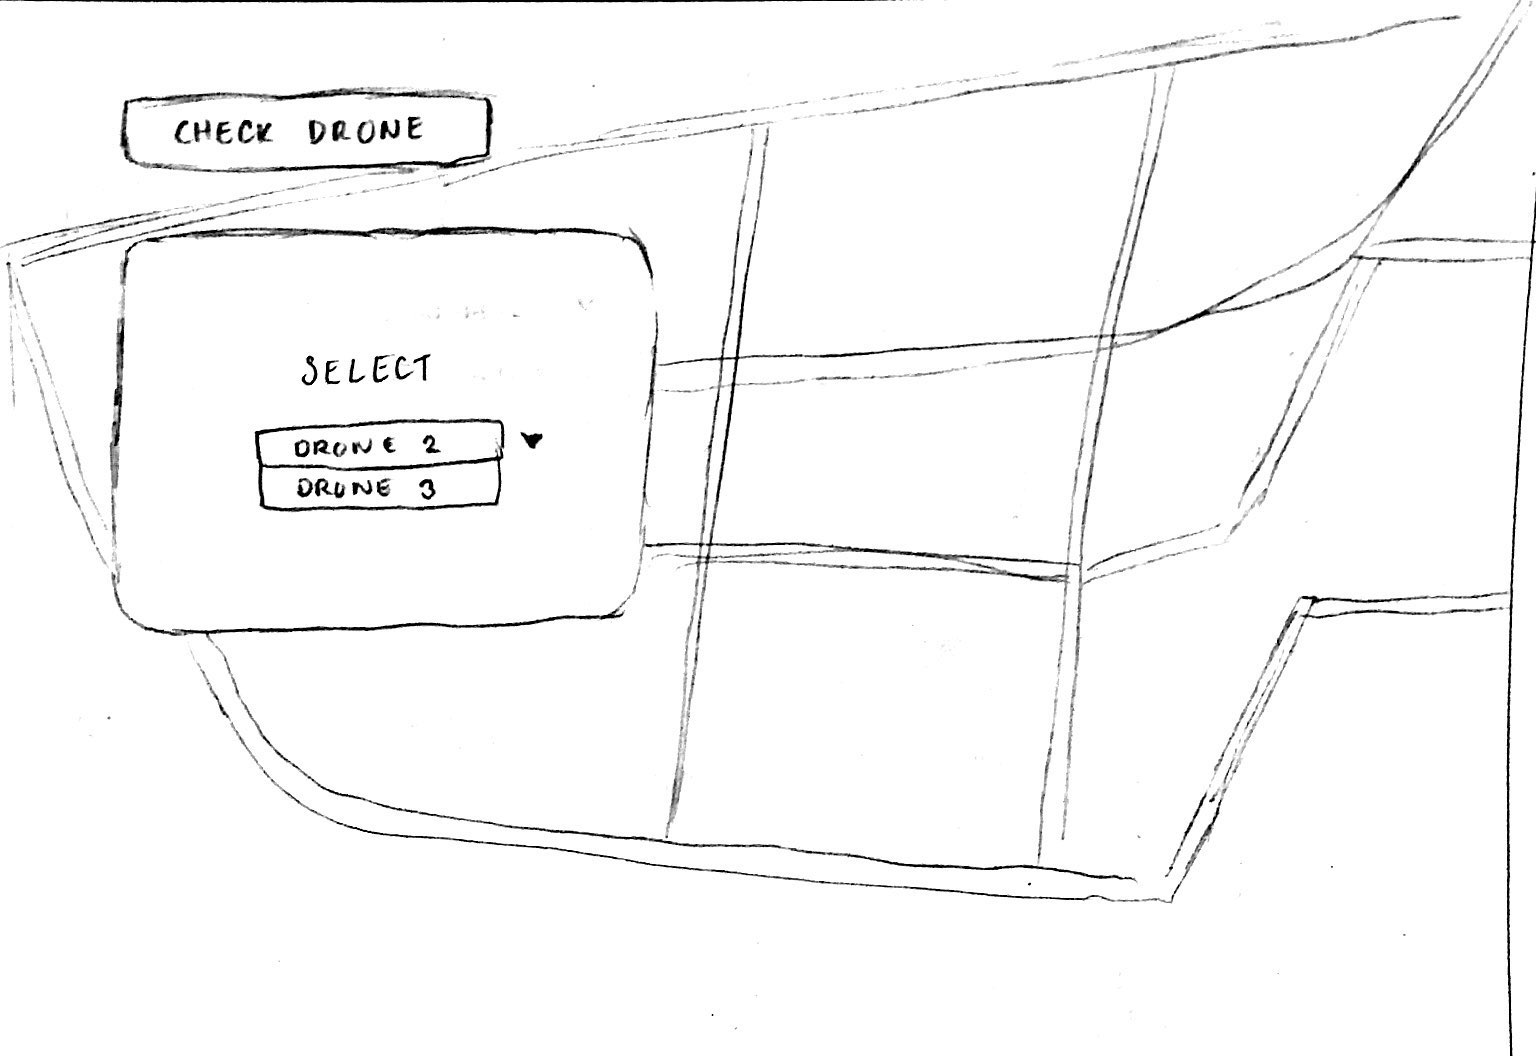 CHECK DRONE
SELECT
DRONE 2
DRONE 3